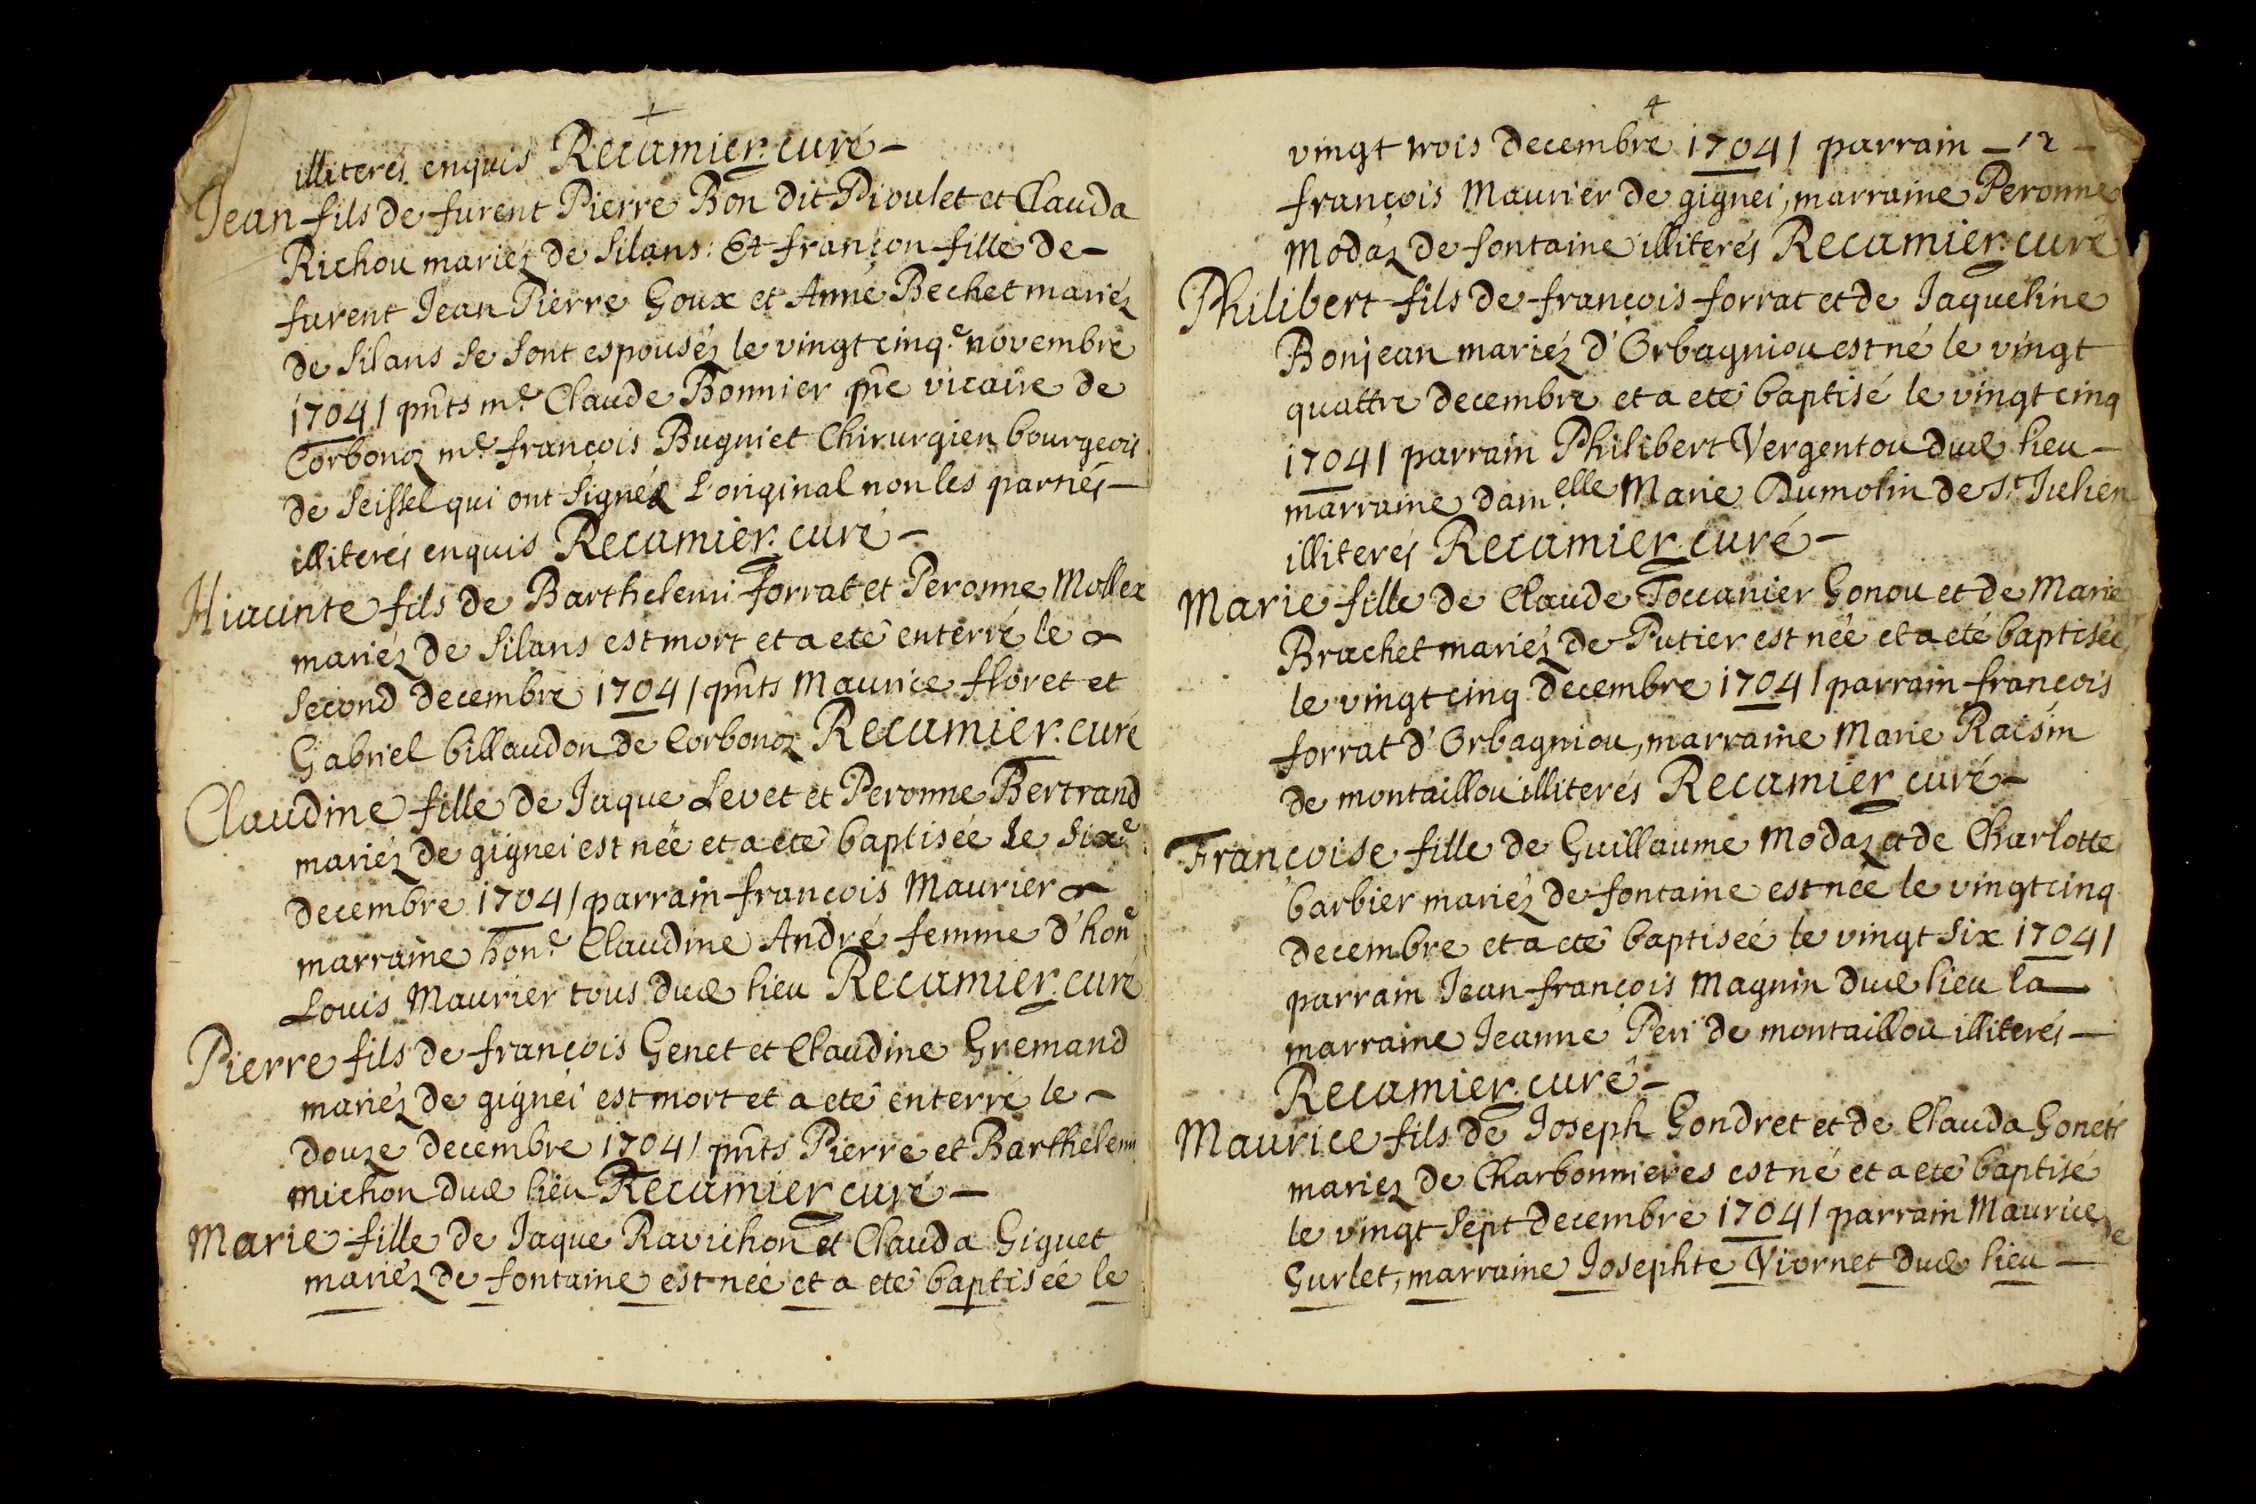 illiterés enquis Recamier. curé –
Jean fils de furent Pierre Bon dit Pioulet et Clauda
Richou mariéz de Silans: Et françon fille de –
furent Jean Pierre Goux et Anne Bechet mariéz
de Silans se sont espouséz le vingt cinq.e novembre
1704 / pnts m.e Claude Bonnier pre vicaire de
Corbonoz m.e françois Bugniet Chirurgien bourgeois
de Seissel qui ont signéz L'original non les parties –
illiterés enquis Recamier. curé –
Hiacinte fils de Barthelemi forrat et Peronne Mollex
mariéz de Silans est mort et a eté enterré le
second decembre 1704 / pnts Maurice floret et
Gabriel billaudon de Corbonoz Recamier. curé
Claudine fille de Jaque Levet et Peronne Bertrand
mariéz de gignei est née et a eté baptisée le Six.e
decembre 1704 / parrain françois Maurier
marraine hon.e Claudine André femme d'hon.e
Louis Maurier tous dud lieu Recamier. curé
Pierre fils de françois Genet et Claudine Gremand
mariéz de gignei est mort et a eté enterré le –
douze decembre 1704 / pnts Pierre et Barthelemi
michon dud lieu Recamier curé –
Marie fille de Jaque Ravichon et Clauda Giguet
mariéz de fontaine est née et a eté baptisée le
4
vingt trois decembre 1704 / parrain – 12 –
françois Maurier de gignei, marraine Peronne
Modaz de fontaine illiterés Recamier. curé
Philibert fils de françois forrat et de Jaqueline
Bonjean mariéz d'Orbagniou est né le vingt
quattre decembre et a eté baptisé le vingt cinq
1704 / parrain Philibert Vergentou dud lieu –
marraine dam.elle Marie Dumolin de S.t Julien
illiterés Recamier. curé –
Marie fille de Claude Toccanier Gonou et de Marie
Brachet mariéz de Putier est née et a eté baptisée
le vingt cinq decembre 1704 / parrain françois
forrat d'Orbagniou, marraine Marie Raisin
de montaillou illiterés Recamier curé –
Françoise fille de Guillaume Modaz et de Charlotte
barbier mariéz de fontaine est née le vingt cinq
decembre et a eté baptisée le vingt six 1704 /
parrain Jean françois Magnin dud lieu la
marraine Jeanne Peri de montaillou illiterés –
Recamier. curé –
Maurice fils de Joseph Gondret et de Clauda Gonet
mariez de Charbonnieres est né et a eté baptisé
le vingt sept decembre 1704 / parrain Maurice
Gurlet, marraine Josephte Viornet dud lieu –